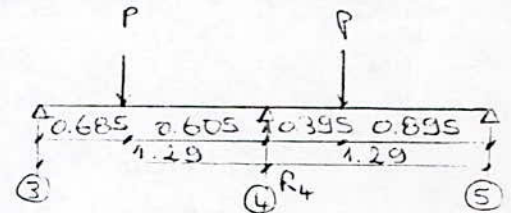 P P
0.685 0.605 0.395 0.895
1.29 1.29
3 4 R4 5